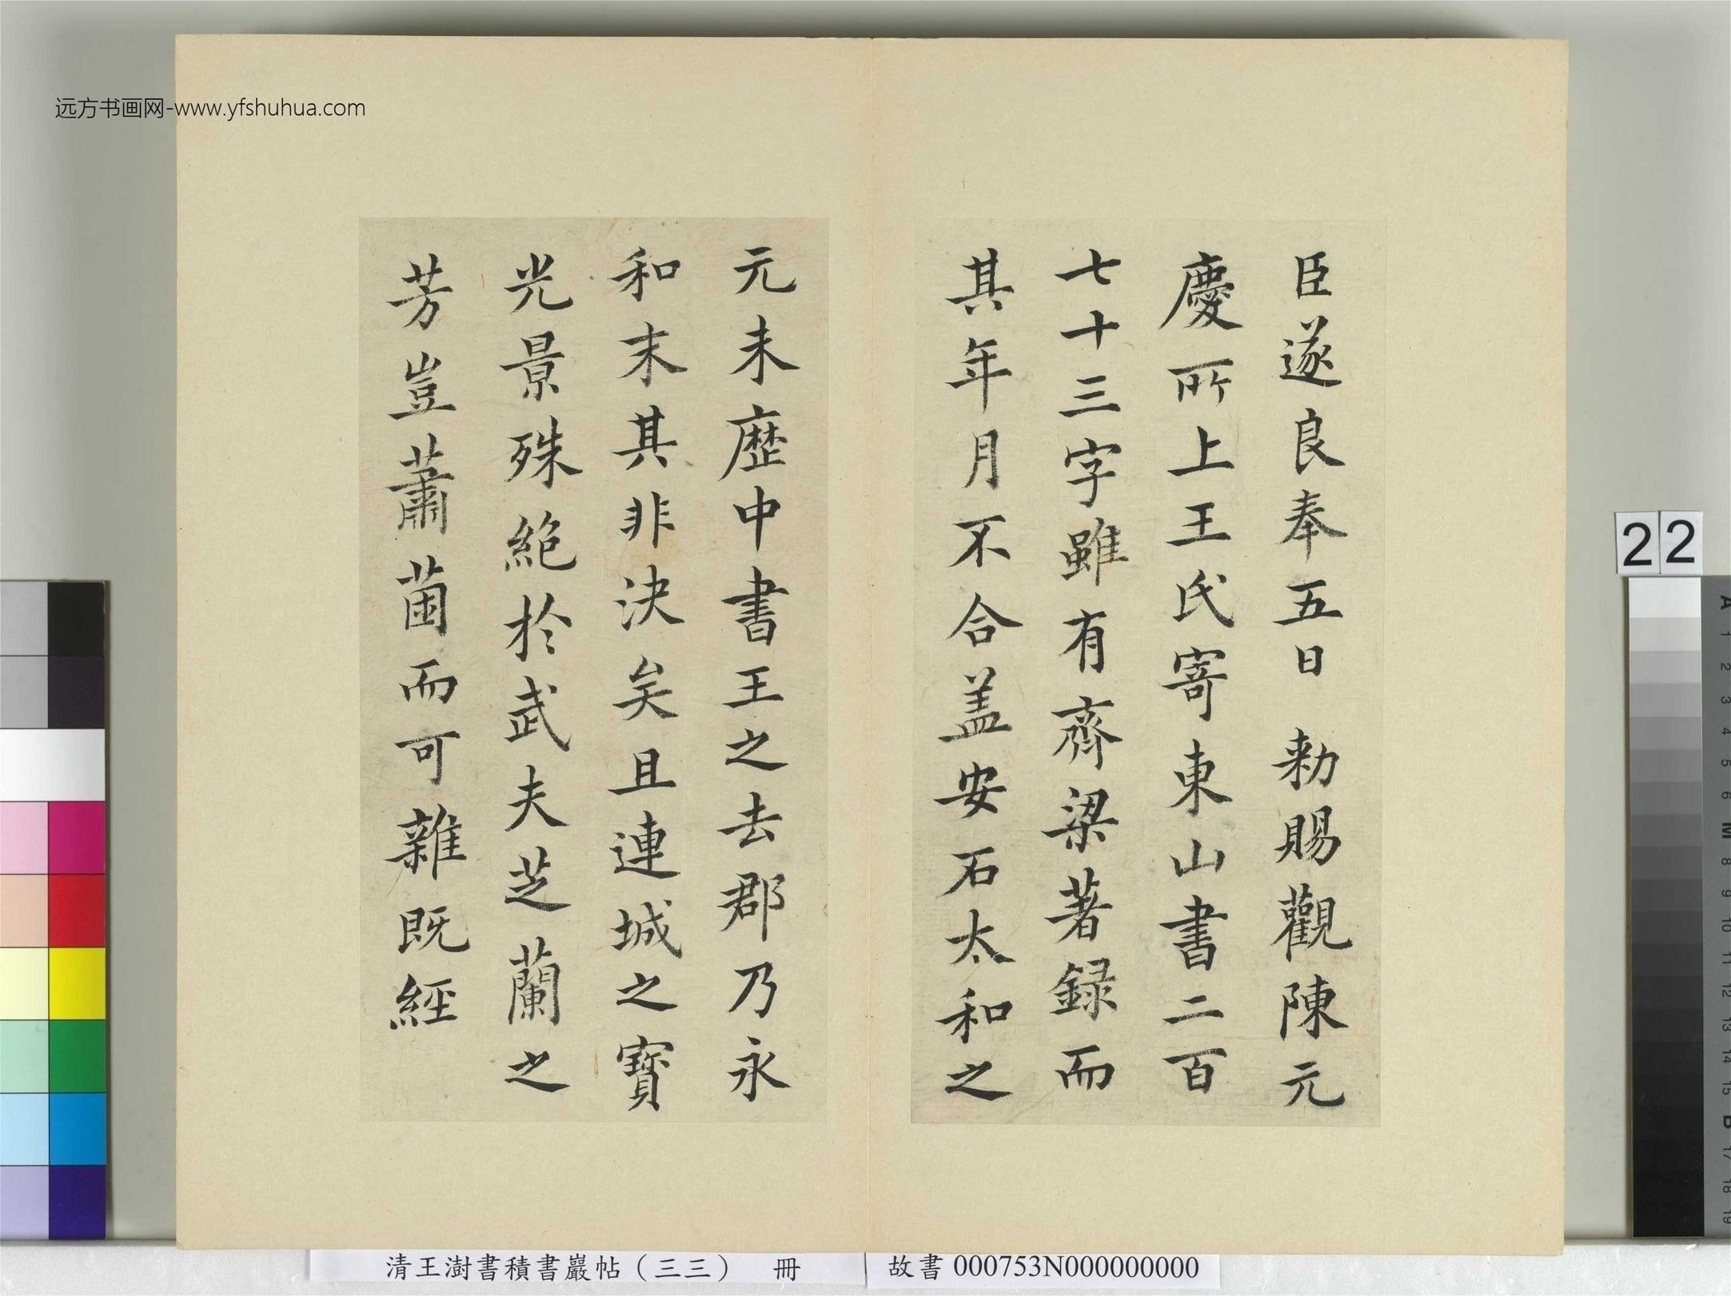 远方书画网-www.yfshuhua.com
臣遂良奉五日 勅賜觀陳元
慶所上王氏寄東山書二百
七十三字雖有齊梁著録而
其年月不合盖安石太和之
元未歷中書王之去郡乃永
和末其非決矣且連城之寶
光景殊絶於武夫芝蘭之
芳豈蕭茵而可雜既經
22
清王澍書積書巖帖（三三） 冊
故書 000753N000000000